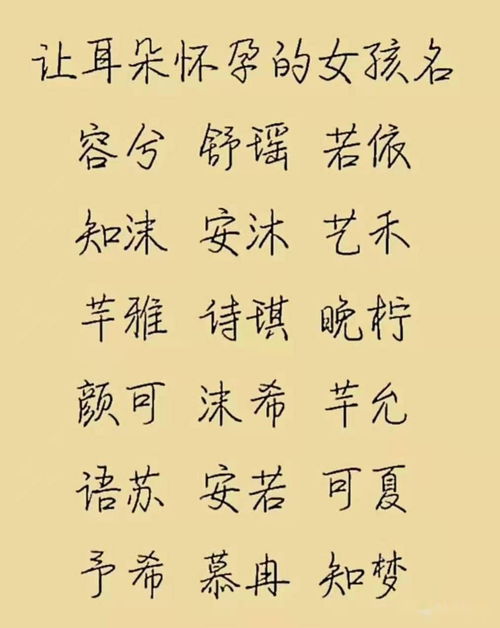 让耳朵怀孕的女孩名
容兮 舒瑶 若依
知沫 安沐 艺禾
芊雅 诗琪 晚柠
颜可 沫希 芊允
语苏 安若 可夏
予希 慕冉 知梦